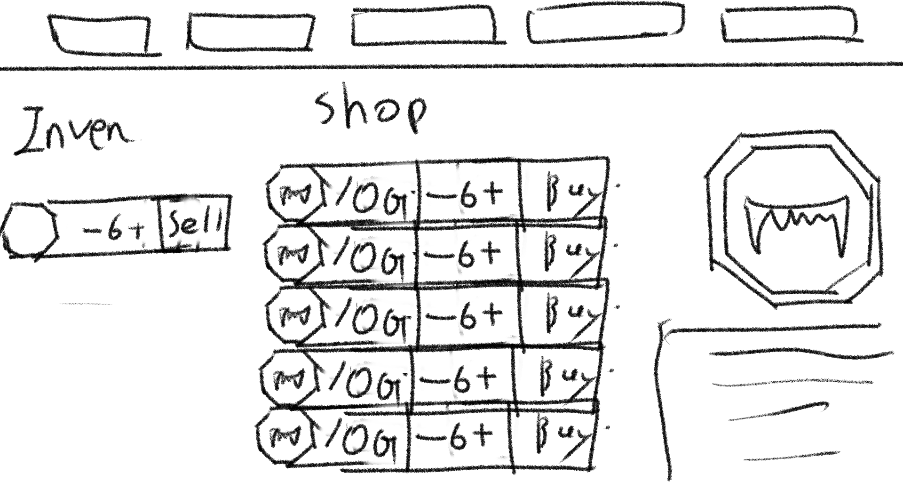 Inven
Shop
-6+ Sell
10G -6+ Buy
10G -6+ Buy
10G -6+ Buy
10G -6+ Buy
10G -6+ Buy